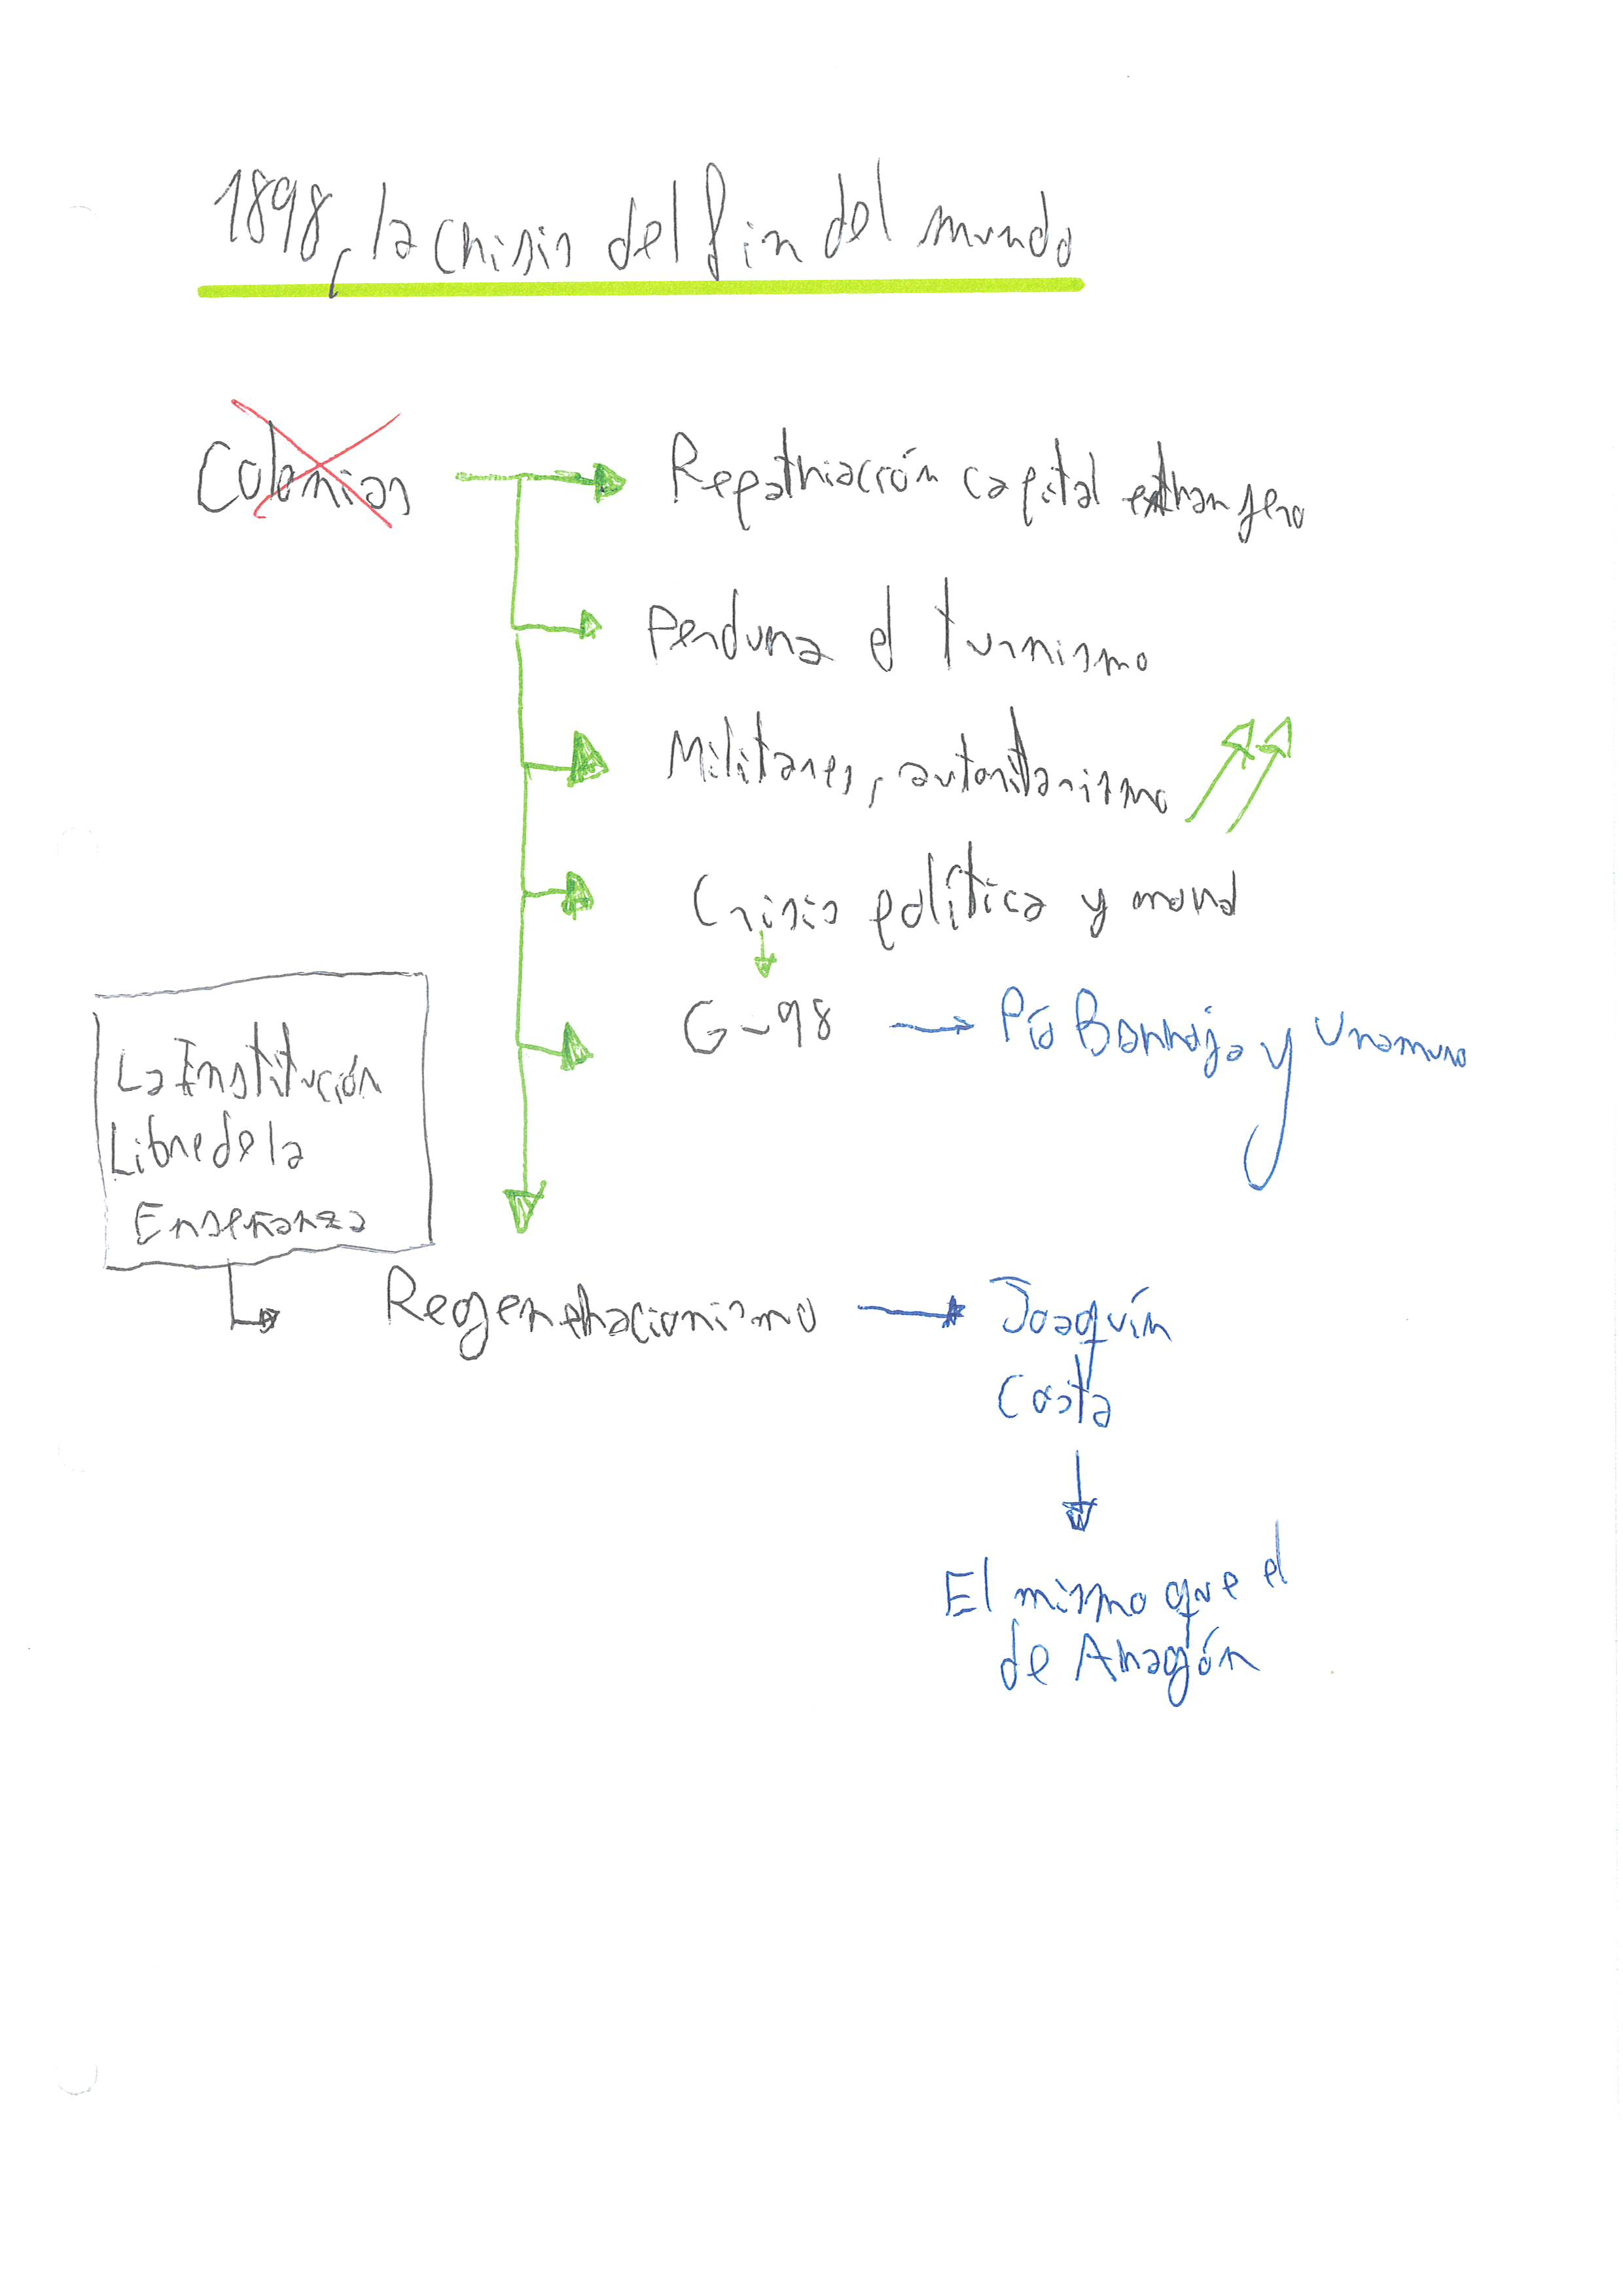 1898, la crisis del fin del mundo
Colonias
Repatriacción capital extranjero
Perdura el turnismo
Militares, autoritarismo
Crisis política y moral
G-98
Pío Barroja y Unamuno
La Institución
Libre de la
Enseñanza
Regeneracionismo
Joaquín
Costa
El mismo que el
de Aragón